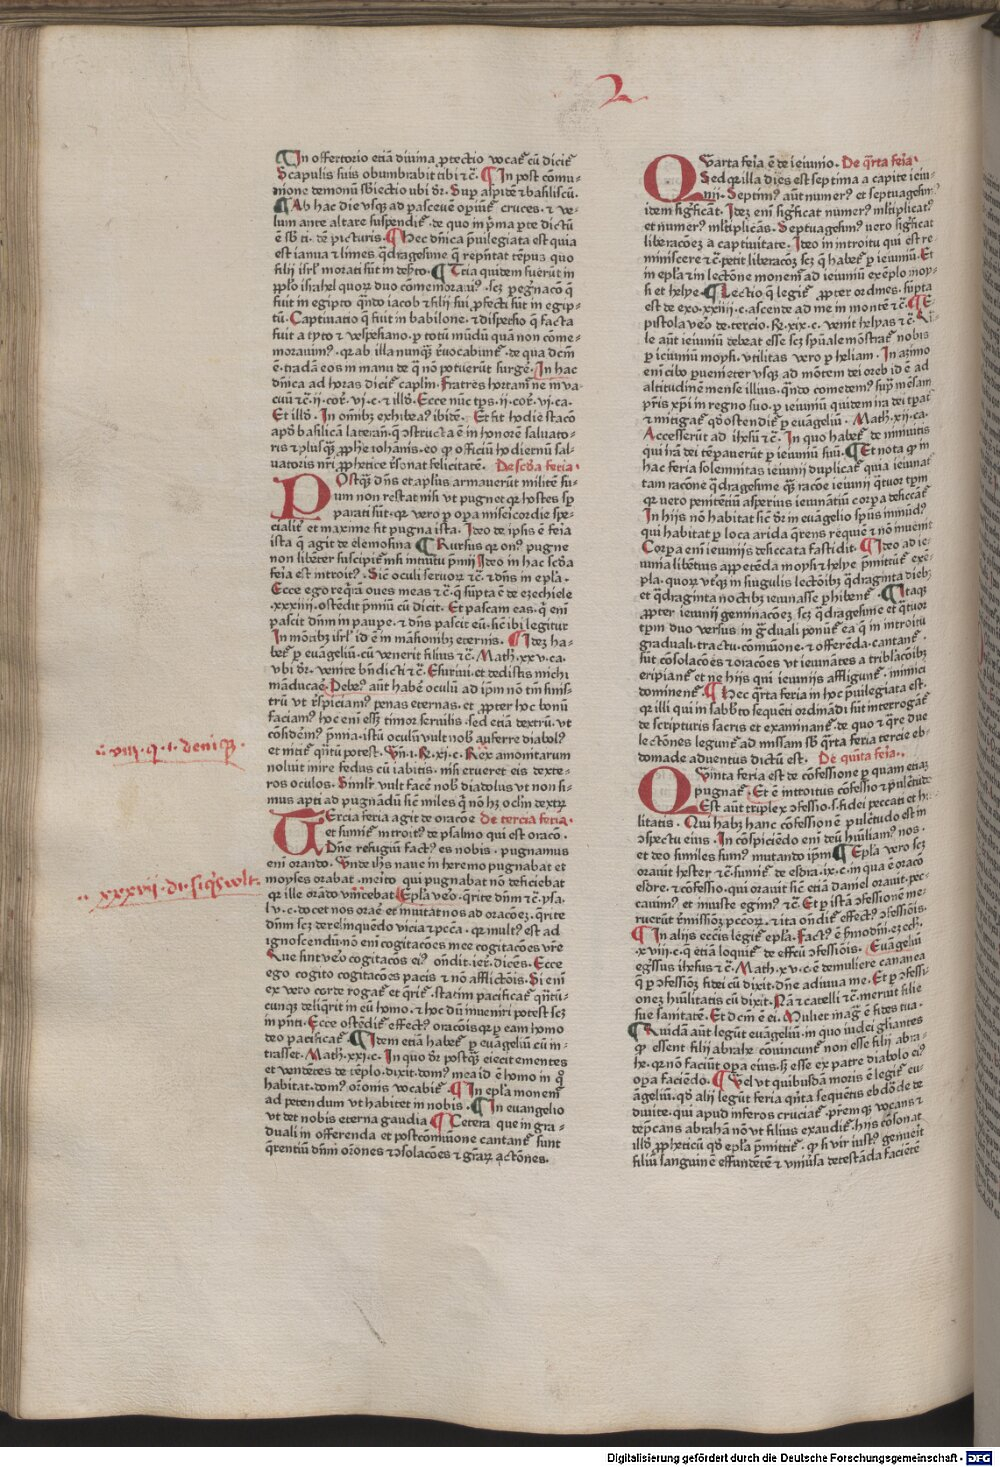 2
In offertorio etiā divina ꝓtectio vocat᷑ cū dicit᷑
Scapulis suis obumbrabit tibi ⁊c̄. In post cōmu-
nione demonū sb̄iectio ubi dr̄. Suꝑ aspidē ⁊ basiliscū.
Ab hac die vsqꝫ ad pascē oꝑiūt᷑ cruces. ⁊ ve-
lum ante altare suspendit᷑. de quo in p̄ma pte dictū
ē sb̄ ti. de picturis. Hec dn̄ica p̄uilegiata est quia
est ianua ⁊ limes q̄dragesime q̄ rep̄ntat tēpus quo
filij isrl̄ morati sūt in deẜto. Tria quidem fuerūt in
pp̄lo israhel quorꝝ duo cōmemorauiꝰ. scꝫ pegnacō q̄
fuit in egipto qn̄do iacob ⁊ filij sui ꝓfecti sūt in egip-
tū. Captiuatio q̄ fuit in babilone. ⁊ dispersio q̄ facta
fuit a tyto ⁊ vespesiano. ꝑ totū mūdū quā non cōme-
morauimꝰ. qꝛ ab illa nunqͣꝫ r̄uocabunt᷑. de qua dcm̄
ē. tradā eos in manu de q̄ nō potuerūt surgē. In hac
dn̄ica ad horas dicit᷑ capl̄m. Fratres hortam̄ ne in va-
cuū ⁊c̄. ii. cor. vj. c. ⁊ illđ. Ecce nūc tp̄s. ii. cor. vj. ca.
Et illđ. In om̄ibꝫ exhibeaꝰ ibidē. Et fit hodie stacō
apđ basilicā laterañ. q̄ ꝯstructa ē in honorē saluato-
ris ⁊ plusqͣꝫ ꝓphe iohānis. eo ꝙ officiū hodiernū sal-
uatoris nr̄i ꝓphetice r̄sonat felicitatē. De scđa feria.
Postqͣꝫ dn̄s et apl̄us armauerūt militē su-
um non restat nisi vt pugnet qꝛ hostes sp̄
parati sūt. qꝛ vero ꝑ opa misericordie spe-
cialit᷑ et maxime fit pugna ista. Ideo de ipsis ē feria
ista q̄ agit de elemosina Rursus qꝛ onꝰ pugne
non libēter suscipit᷑ nisi intuitu p̄mij Ideo in hac scđa
feria est introitꝰ. Sic oculi seruorꝝ ⁊c̄. ⁊ dn̄s in epl̄a.
Ecce ego reqͥrā oues meas ⁊c̄. q̄ sūpta ē de ezechiele
.xxxiiij. ostēdit p̄miū cū dicit. Et pascam eas. q̄ eni
pascit dn̄m in pauꝑe. ⁊ dn̄s pascit eū. sic ibi legitur
In mōtibꝫ isrl̄ id ē in māsionibꝫ eternis. Idez ha-
bet᷑ ꝑ euāgeliū. cū venerit filius ⁊c̄. Math. xxv. ca.
vbi dr̄. venite bn̄dicti ⁊c̄. Esuriui. et dedistis michi
māducaē. Debeꝰ aut habē oculū ad ip̄m nō tm̄ sinis-
trū vt r̄spiciamꝰ penas eternas. et ꝓpter hoc bonū
faciamꝰ hoc eni eēt timor seruilis. sed etiā dextrū. vt
cōsidemꝰ p̄mia. istū oculū vult nob̄ auferre diabolꝰ
et nitit᷑ qn̄tū potest. Vn̄. i. R̄. xj. c. Rex amonitarum
noluit inire fedus cū iabitis. nisi erueret eis dexte-
ros oculos. Similr̄ vult facē nob̄ diabolus vt non si-
mus apti ad pugnādū sic miles q̄ nō hꝫ oclm̄ dextrꝝ
Tercia feria agit de oracōe De tercia feria.
et sumit᷑ introitꝰ de psalmo qui est oracō.
Dn̄e refugiū factꝰ es nobis. pugnamus
eni orando. Vnde ihs naue in heremo pugnabat et
moyses orabat. merito qui pugnabat nō deficiebat
qꝛ ille orādo vincebat Epl̄a vero. q̄rite dn̄m ⁊c̄. ysa.
lv. c. docet nos orare ⁊ inuitat nos ad oracōez. q̄rite
dn̄m scꝫ derelinquēdo vicia ⁊ pcc̄a. qꝛ multꝰ est ad
ignoscendū. nō eni cogitacōes mee cogitacōes vr̄e
Que sint vero cogitacōes eiꝰ on̄dit. ier̄. dicens. Ecce
ego cogito cogitacōes pacis ⁊ nō afflictōis. Si eni
ex vero corde rogat᷑ et q̄rit᷑. statim pacificat᷑ qn̄tū-
cunqꝫ deliq̄rit in eū homo. ⁊ hoc dū inueniri potest scꝫ
in p̄nti. Ecce ostēdit᷑ effectꝰ oracōis qꝛ ꝑ eam homo
deo pacificat᷑. Idem etiā habet᷑ ꝑ euāgeliū cū in-
trasset. Math. xxj. c. In quo dr̄ postqͣꝫ eiecit ementes
et vendētes de tēplo. dixit. domꝰ mea id ē homo in q̄
habitat. domꝰ orōnis vocabit᷑. In epl̄a monem̄
ad petendum vt habitet in nobis. In euangelio
vt det nobis eterna gaudia Cetera que in gra-
duali in offerenda et postcōmūione cantant᷑ sunt
q̄rentiū dn̄m orōnes ⁊ ꝯsolacōes ⁊ gr̄arꝝ actōnes.
.. viij. q. i. deniqꝫ.
.. xxxvij. di. si qͥs vlt.
Quarta feria ē de ieiunio. De q̄rta feria.
Sed qꝛ illa dies est septima a capite ieiu-
nij. Septimꝰ aūt numerꝰ et septuagesimꝰ
idem sigͥficāt. Idez eni sigͥficat numerꝰ ml̄tiplicatꝰ
et numerꝰ ml̄tiplicās. Septuagesimꝰ vero sigͥficat
liberacōez a captiuitate. Ideo in introitu qui est re
miniscere ⁊c̄. petit᷑ liberacōez scꝫ q̄ habet᷑ ꝑ ieiuniū. Et
in epl̄a ⁊ in lectōne monem̄ ad ieiuniū exēplo moy-
si et helye. Lectio q̄ legit᷑ ꝓpter ordines. sūpta
est de exo. xxiiij. c. ascende ad me in montē ⁊c̄. E-
pistola vero de tercio. R̄. xix. c. venit helyas ⁊c̄. Qͣ-
le aūt ieiuniū debeat esse scꝫ sp̄uale mōstrat᷑ nobis
ꝑ ieiuniū moysi. vtilitas vero ꝑ heliam. In azimo
eni cibo ꝑuenietur vsqꝫ ad mōtem dei oreb id ē ad
altitudinē mense illius. qn̄do comedemꝰ suꝑ mēsam
pr̄is xp̄i in regno suo. ꝑ ieiuniū quidem ira dei tꝑat᷑
⁊ mitigat᷑ qđ ostendit᷑ ꝑ euāgeliū. Math. xij. ca.
Accesserūt ad ihesū ⁊c̄. In quo habet᷑ de niniuitis
qui irā dei tēꝑauerūt ꝑ ieiuniū suū. Et nota ꝙ in
hac feria solemnitas ieiunij duplicat᷑ quia ieiunat᷑
tam racōne q̄dragesime qͣꝫ racōe ieiunij qͣtuor tꝑm
qꝛ vero penitētiū asperius ieiunātiū corꝑa desiccāt᷑
In hijs nō habitat sic dr̄ in euāgelio sp̄us īmūdꝰ
qui habitat ꝑ loca arida q̄rens requiē ⁊ nō inuenit
Corꝑa eni ieiunijs desiccata fastidit. Ideo ad ie-
iunia libētius appetēda moysi ⁊ helye p̄mittūt᷑ exē-
pla. quorꝝ vterqꝫ in singulis lectōibꝫ q̄draginta diebꝫ
et q̄draginta noctibꝫ ieiunasse ꝑhibent᷑. Itaqꝫ
ꝓpter ieiunij geminacōez scꝫ q̄dragesime et qͣtuor
tꝑm duo versus in gͣduali ponūt᷑ ea q̄ in introitu
graduali. tractu. cōmūione. ⁊ offerēda. cantant᷑
sūt ꝯsolacōes ⁊ oracōes vt ieiunātes a tribulacōibꝫ
eripiant᷑ et ne hijs qui ieiunijs affligunt᷑. inimici
dominent᷑. Hec q̄rta feria in hoc p̄uilegiata est.
qꝛ illi qui in sabb̄to sequēti ordinādi sūt interrogāt᷑
de scripturis sacris et examinant᷑. de quo ⁊ q̄re due
lectōnes legunt᷑ ad missam sb̄ q̄rta feria tercie eb-
domade aduentus dictū est. De quīta feria..
Quinta feria est de cōfessione ꝑ quam etiaꝫ
pugnat᷑. Et ē introitus cōfessio ⁊ pulc̄tudo
Est aūt triplex ꝯfessio. s. fidei peccati et hu-
litatis. Qui habꝫ hanc cōfessionē pulc̄tudo est in
ꝯspectu eius. In cōspiciēdo eni deū hūiliamꝰ nos.
et deo similes sumꝰ mutando ip̄m Epl̄a vero scꝫ
orauit hester ⁊c̄. sumit᷑ de esdra. ix. c. in qua ē oracō
esdre. ⁊ cōfessio. qui orauit sic etiā daniel orauit. pec-
cauimꝰ. et iniuste egimꝰ ⁊c̄. Et ꝑ istā ꝯfessionē me-
ruerūt r̄missiōꝫ pcc̄orꝝ. ⁊ ita on̄dit᷑ effectꝰ ꝯfessiōis.
In alijs eccl̄is legit᷑ epl̄a. Factꝰ ē sermo dn̄i. ezech.
.xviij. c. q̄ etiā loquit᷑ de effcū ꝯfessiōis. Euāgeliū
egr̄ssus ihesus ⁊c̄. Math. xv. c. ē de muliere cananea
q̄ ꝑ ꝯfessiōꝫ fidei cū dixit. dn̄e adiuua me. Et ꝑ ꝯfessi-
onez hūilitatis cū dixit. Nā ⁊ catelli ⁊c̄. meruit filie
sue sanitatē. Et dcm̄ ē ei. Mulier magͣ ē fides tua.
Quidā aūt legūt euāgeliū. in quo iudei gl̄iantes
ꝙ essent filij abrahe cōuincunt᷑ non esse filij abra-
he. qꝛ nō faciūt oꝑa eius. sꝫ esse ex patre diabolo eiꝰ
oꝑa faciēdo. Vel vt quibusdā moris ē legit᷑ eu-
āgeliū. qđ alij legūt feria qͥnta sequētis ebdōde de
diuite. qui apud inferos cruciat᷑. p̄remqꝫ vocans ⁊
dep̄cans abrahā nō vt filius exaudit᷑. hijs cōsonat
illđ ꝓpheticū qđ epl̄a p̄mittit᷑. ꝙ si vir iustꝰ genuerit
filiū sanguinē effundētē ⁊ vniūsa detestāda faciētē
Digitalisierung gefördert durch die Deutsche Forschungsgemeinschaft - DFG